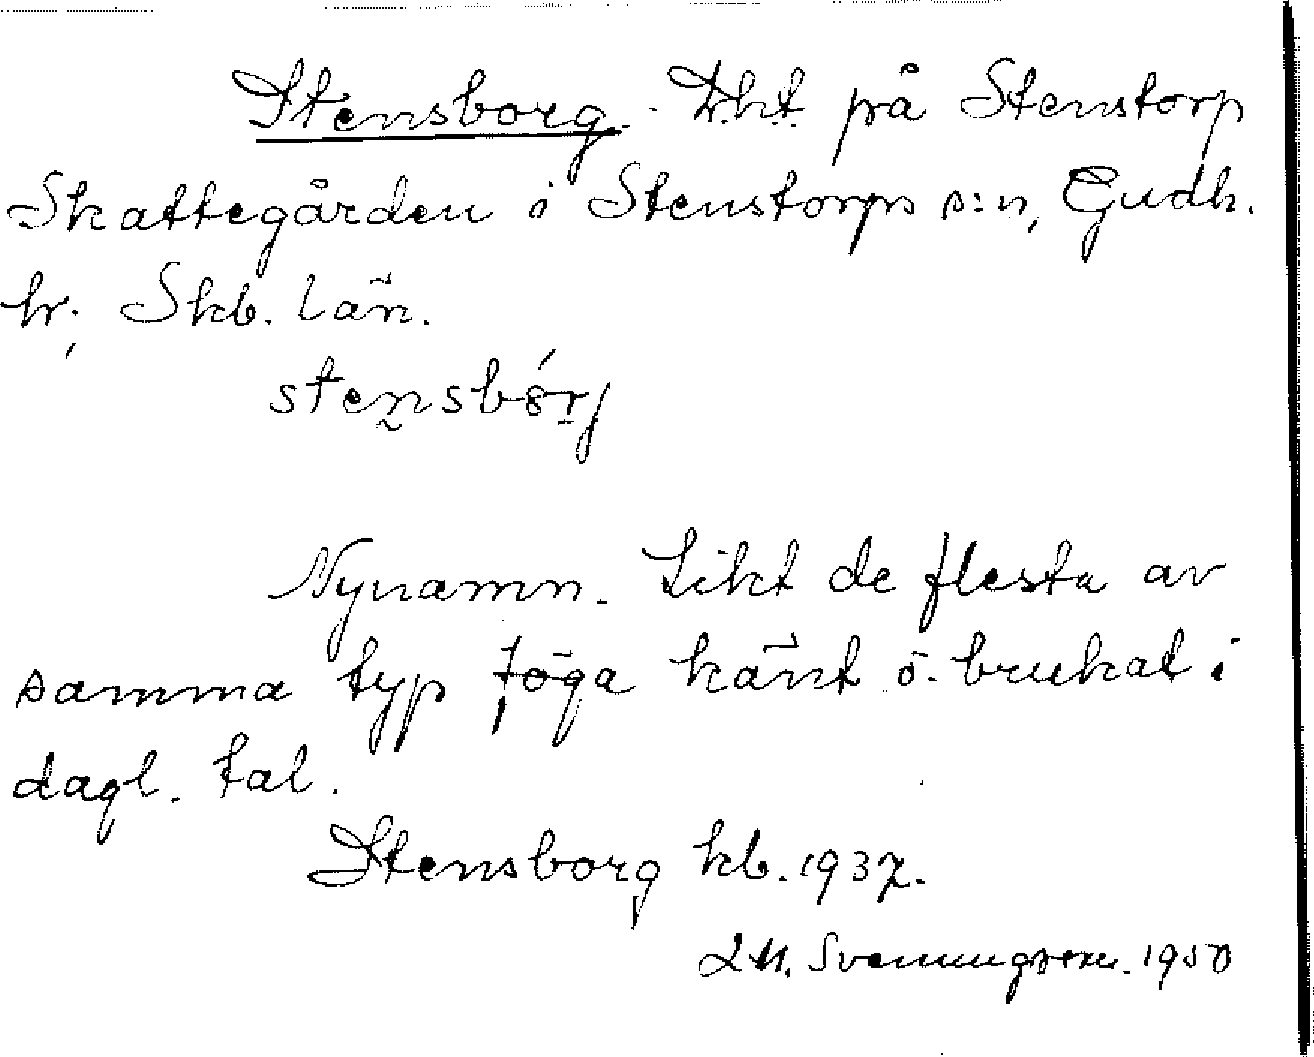 Stensborg. Lht. på Stenstorp
Skattegården i Stenstorps s:n, Gudh.
hr., Skb. län.
stensbórj
Nynamn. Likt de flesta av
samma typ föga känt o. brukat i
dagl. tal.
Stensborg kb. 1937.
Svenungsson. 1950